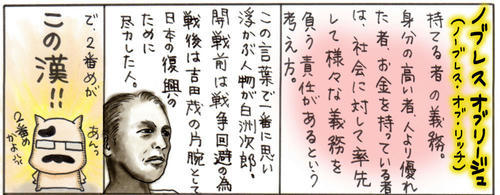 ノブレス オブリージュ
(ノーブレス・オブ・リッチ)
持てる者の義務。
身分の高い者、人より優れ
た者、お金を持っている者
は、社会に対して率先
して様々な義務を
負う責任があるという
考え方。
この言葉で一番に思い
浮かぶ人物が白洲次郎。
開戦前は戦争回避の為
戦後は吉田茂の片腕として
日本の復興の
ために
尽力した人。
で、2番めが
この漢!!
あんっ
2番め
かよ